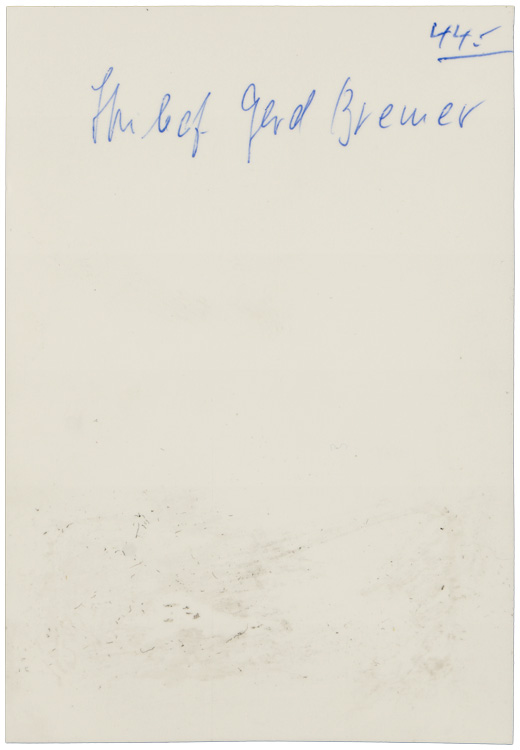 44.-
Stubaf Gerd Bremer